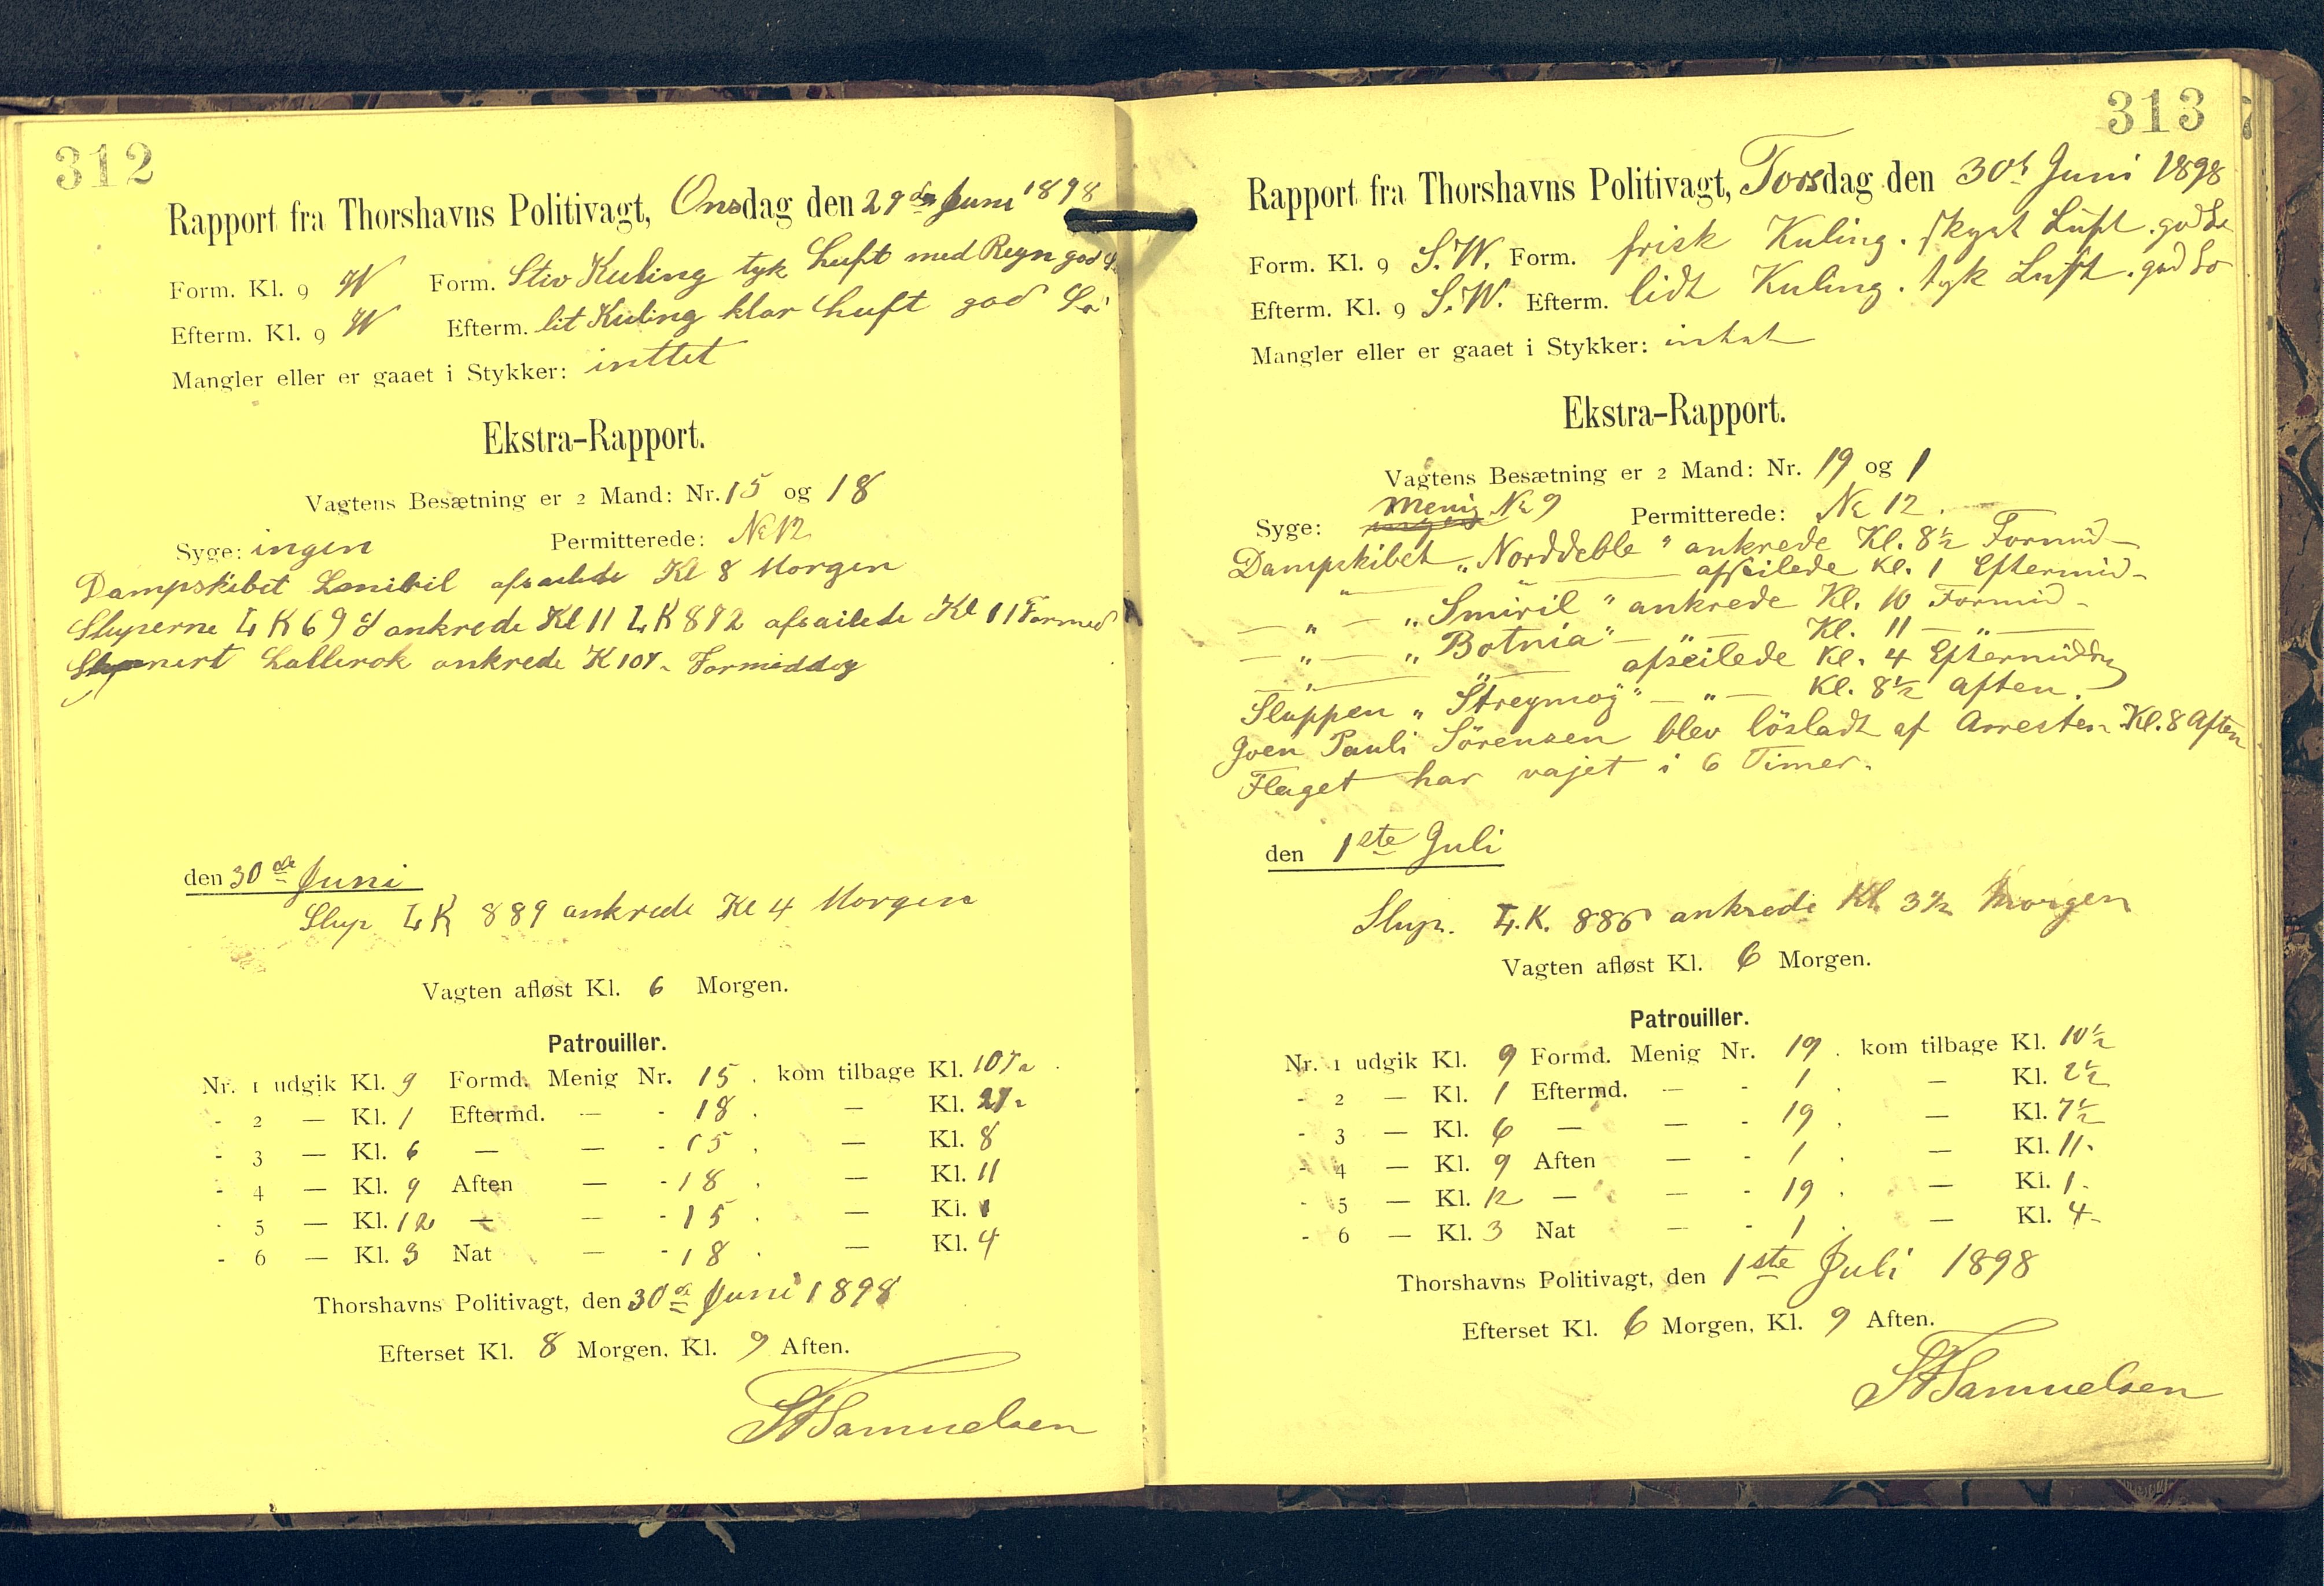 312
Rapport fra Thorshavns Politivagt, Onsdag den 29de Juni 1898
Form. Kl. 9 W Form. Stiv Kuling tyk Luft med Regn god
Efterm. Kl. 9 W Efterm. lit Kuling klar Luft god So
Mangler eller er gaaet i Stykker: inttet
Ekstra-Rapport.
Vagtens Besætning er 2 Mand: Nr. 15 og 18
Syge: ingen Permitterede: No 12
Dampskibet afsailede Kl 8 Morgen
Sluperne ankrede Kl 11 872 afsailede Kl 11 Formed
ankrede K 10½ Formiddag
den 30de Juni
Slup 889 ankrede Kl 4 Morgen
Vagten afløst Kl. 6 Morgen.
Patrouiller.
Nr. 1 udgik Kl. 9 Formd. Menig Nr. 15. kom tilbage Kl. 10½
- 2 — Kl. 1 Eftermd. — - 18. — Kl. 2½
- 3 — Kl. 6 — — - 15. — Kl. 8
- 4 — Kl. 9 Aften — - 18. — Kl. 11
- 5 — Kl. 12 — — - 15. — Kl. 1
- 6 — Kl. 3 Nat — - 18. — Kl. 4
Thorshavns Politivagt, den 30de Juni 1898
Efterset Kl. 8 Morgen, Kl. 9 Aften.
Samuelsen
313
Rapport fra Thorshavns Politivagt, Torsdag den 30te Juni 1898
Form. Kl. 9 S.W. Form. frisk Kuling. skyet Luft. god So
Efterm. Kl. 9 S.W. Efterm. lidt Kuling. tyk Luft. god So
Mangler eller er gaaet i Stykker: intet
Ekstra-Rapport.
Vagtens Besætning er 2 Mand: Nr. 19 og 1
Syge: Menig No 9 Permitterede: No 12.
Dampskibet „Norddeble" ankrede Kl. 8½ Formid-
— " — afseilede Kl. 1 Eftermid-
— " — „Smiril" ankrede Kl. 10 Formid-
— " — „Botnia" — " — Kl. 11 — " —
— " — " — afseilede Kl. 4 Eftermiddag
Sluppen „Streymoy" — " — Kl. 8½ Aften.
Joen Pauli Sörensen blev lösladt af Arresten Kl. 8 Aften
Flaget har vajet i 6 Timer.
den 1ste Juli
Slup. 886 ankrede Kl. 3½ Morgen
Vagten afløst Kl. 6 Morgen.
Patrouiller.
Nr. 1 udgik Kl. 9 Formd. Menig Nr. 19. kom tilbage Kl. 10½
- 2 — Kl. 1 Eftermd. — - 1. — Kl. 2½
- 3 — Kl. 6 — — - 19. — Kl. 7½
- 4 — Kl. 9 Aften — - 1. — Kl. 11-
- 5 — Kl. 12 — — - 19. — Kl. 1-
- 6 — Kl. 3 Nat — - 1. — Kl. 4-
Thorshavns Politivagt, den 1ste Juli 1898
Efterset Kl. 6 Morgen, Kl. 9 Aften.
Samuelsen